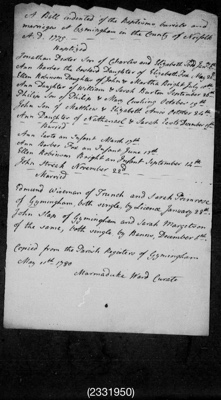 A Bill indented of the Baptisms burials and
marriages at Gymingham in the County of Norfolk
A.D. 1779
Baptized
Jonathan Dexter Son of Charles and Elizabeth
Ann Barber the bastard Daughter of Elizabeth May
Ellen Robinson Daughter of John & Martha Knight July
Ann Daughter of William & Sarah Burton September
Philip Son of Philip & Mary October 17th
John Son of Matthew & Elizabeth October 24th
Ann Daughter of Nathaniel & Sarah December
Buried
Ann an Infant March 17th
Ann Barber an Infant June 17th
Ellen Robinson Knight an Infant September 14th
John November 28th
Married
Edmund Wiseman of Trunch and Sarah Primrose
of Gymingham both single, by Licence January 28th
John of Gymingham and Sarah Margetson
of the same, both single by Banns, December
Copied from the Parish Registers of Gymingham
May 11th 1780
Marmaduke Ward Curate
(2331950)